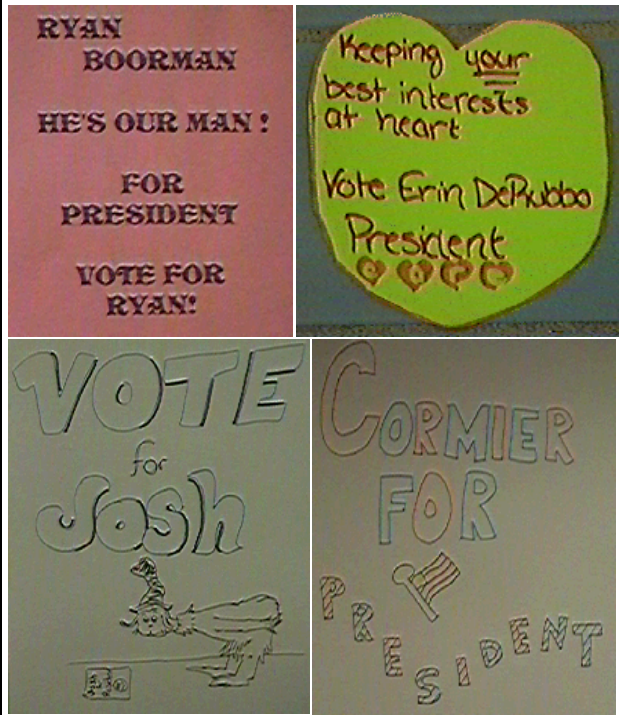 RYAN
BOORMAN
HE'S OUR MAN !
FOR
PRESIDENT
VOTE FOR
RYAN!
Keeping your
best interests
at heart
Vote Erin DeRubbo
President
VOTE
for
Josh
CORMIER
FOR
PRESIDENT